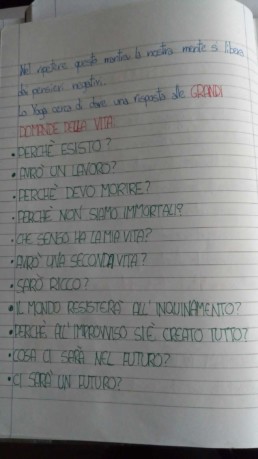 Nel ripetere questo mantra la nostra mente si libera
dai pensieri negativi.
Lo Yoga cerca di dare una risposta alle GRANDI
DOMANDE DELLA VITA
• PERCHÈ ESISTO?
• AVRÒ UN LAVORO?
• PERCHÈ DEVO MORIRE?
• PERCHÈ NON SIAMO IMMORTALI?
• CHE SENSO HA LA MIA VITA?
• AVRÒ UNA SECONDA VITA?
• SARÒ RICCO?
• IL MONDO RESISTERÀ ALL'INQUINAMENTO?
• PERCHÈ ALL'IMPROVVISO SI È CREATO TUTTO?
• COSA CI SARÀ NEL FUTURO?
• CI SARÀ UN FUTURO?